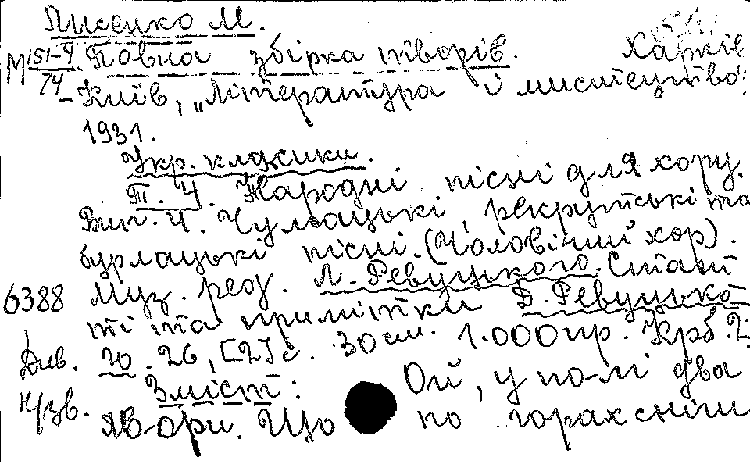 Лисенко М.
М 151-4/74 Повна збірка творів. Харків
Київ, „Література і мистецтво",
1931.
Укр. класики.
Т. 4. Народні пісні для хору.
Вип. 4. Чумацькі, рекрутські та
бурлацькі пісні. (Чоловічий хор).
6388 Муз. ред. Л. Ревуцького. Статті
та примітки Д. Ревуцько
Див. 26, [2] с. 30 см. 1.000 пр. Крб 2
Зміст: Ой, у полі два
явори. Що по горах сніги